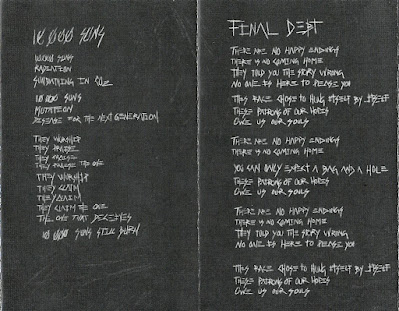 10,000 SUNS
10,000 SUNS
RADIATION
SUNBATHING IN CO2
10,000 SUNS
MUTATION
DISEASE FOR THE NEXT GENERATION
THEY WORSHIP
THEY PRAISE
THEY PRAISE
THEY PRAISE THE ONE
THEY WORSHIP
THEY CLAIM
THEY CLAIM
THEY CLAIM THE ONE
THE ONE THAT DECEIVES
10,000 SUNS STILL BURN
FINAL DEBT
THERE ARE NO HAPPY ENDINGS
THERE IS NO COMING HOME
THEY TOLD YOU THE STORY WRONG
NO ONE IS HERE TO PLEASE YOU
THIS RACE CHOSE TO HUNG ITSELF BY ITSELF
THESE PATRONS OF OUR HOPES
OWE US OUR SOULS
THERE ARE NO HAPPY ENDINGS
THERE IS NO COMING HOME
YOU CAN ONLY EXPECT A BAG AND A HOLE
THESE PATRONS OF OUR HOPES
OWE US OUR SOULS
THERE ARE NO HAPPY ENDINGS
THERE IS NO COMING HOME
THEY TOLD YOU THE STORY WRONG
NO ONE IS HERE TO PLEASE YOU
THIS RACE CHOSE TO HUNG ITSELF BY ITSELF
THESE PATRONS OF OUR HOPES
OWE US OUR SOULS